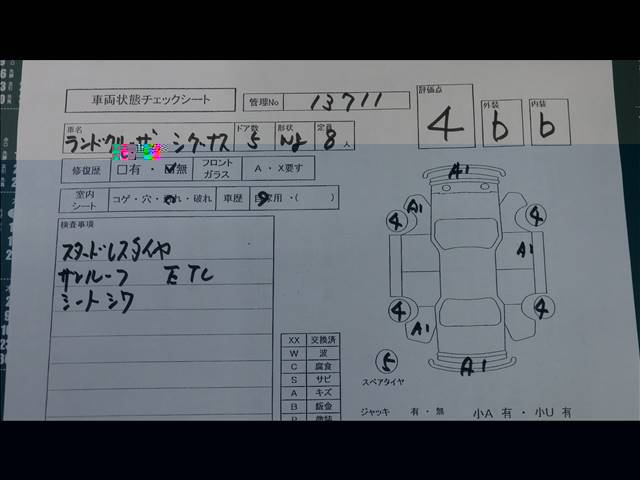 車両状態チェックシート 管理No 13711
評価点 4 外装 b 内装 b
車名 ランドクルーザー シグナス ドア数 5 形状 Wg 定員 8人
修復歴 □有・☑無 フロントガラス A・X要す
室内シート コゲ・穴・汚れ・破れ 車歴 自家用・( )
検査事項
スタッドレスタイヤ
サンルーフ ETC
シートシワ
A1
4 A1 4
A1
4 A1 4
5 A1
スペアタイヤ
XX 交換済
W 波
C 腐食
S サビ
A キズ
B 鈑金
P 塗装
ジャッキ 有・無 小A 有・小U 有